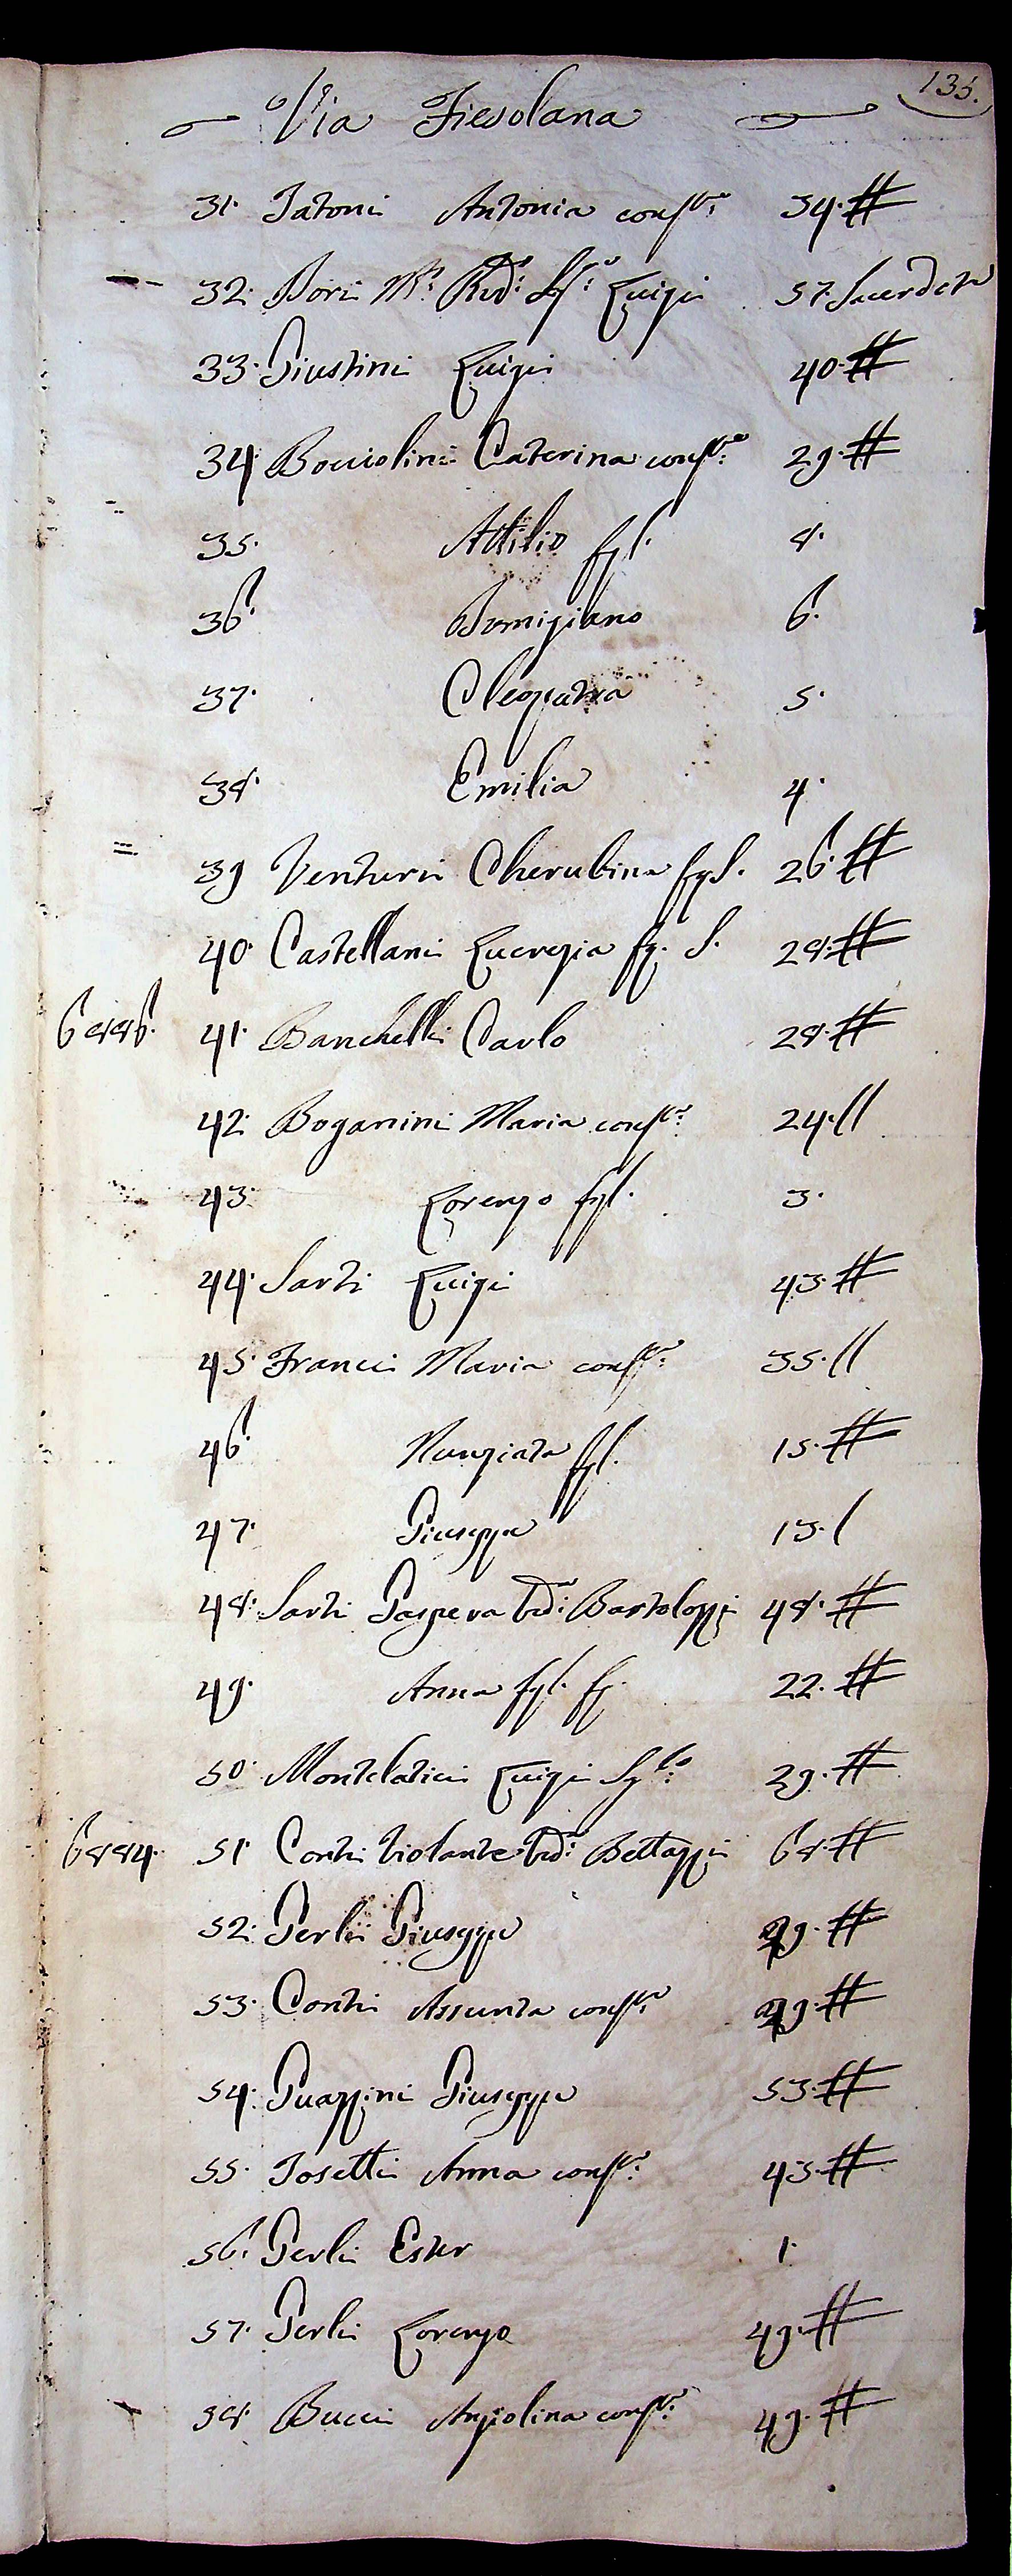 135.
Via Fiesolana
31. Tatoni Antonia cons.te 34.#
32. Bori M.to Rd.o Sg.e Luigi 57. Sacerdote
33. Giustini Luigi 40.#
34 Bocciolini Caterina cons.te 29.#
35. Attilio fgl. 8.
36. Domigiano 6.
37. Cleopatra 5.
38. Emilia 4.
39 Venturi Cherubina fgl. 26.#
40. Castellani Lucrezia fg. S. 28.#
6886. 41. Banchelli Carlo 28.#
42. Boganini Maria cons.te 24.//
43. Lorenzo fgl. 3.
44. Sarti Luigi 43.#
45. Franci Maria cons.te 35.//
46. Nunziata fgl. 15.#
47. Giuseppe 13./
48. Sarti Gaspera Vd.a Bartolozzi 48.#
49. Anna fgl. fg. 22.#
50. Montelatici Luigi Sg.lo 29.#
6884. 51. Conti Violante Vd.a Bettazzi 68.#
52. Perli Giuseppe 29.#
53. Conti Assunta cons.te 29.#
54. Guazzini Giuseppe 53.#
55. Tosetti Anna cons.te 43.#
56. Perli Ester 1.
57. Perli Lorenzo 49.#
58. Bucci Angiolina cons.te 49.#